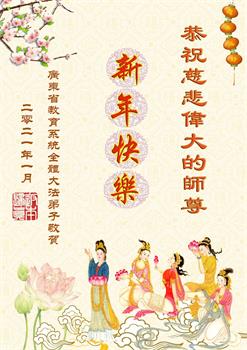 恭祝慈悲偉大的師尊
新年快樂
廣東省教育系統全體大法弟子敬賀
二零二一年一月